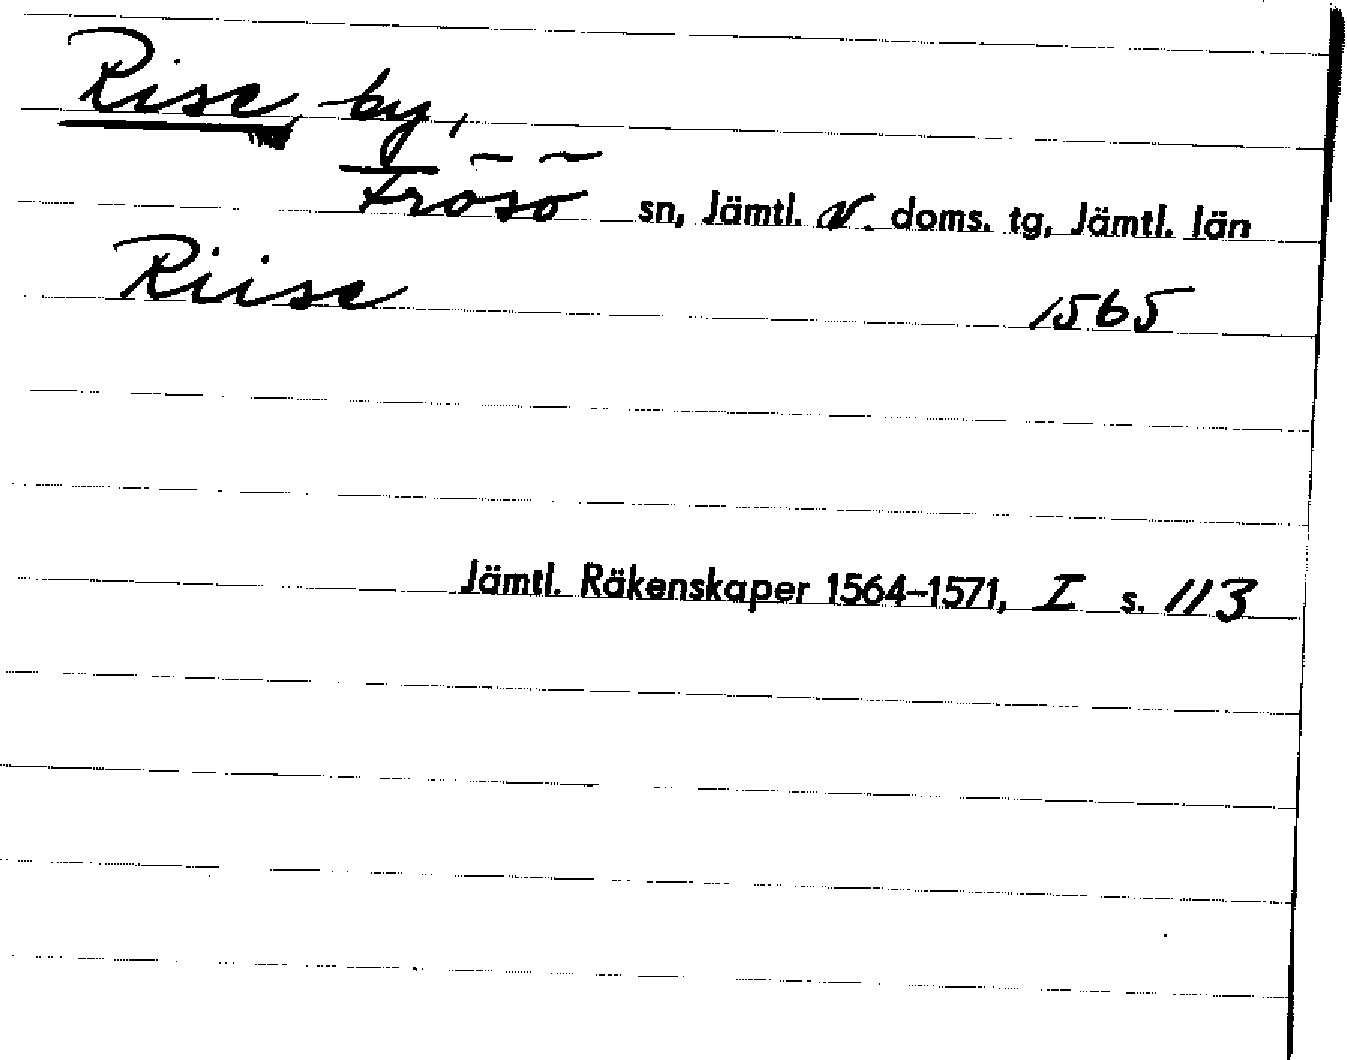 Rise by,
Frösö sn, Jämtl. N. doms. tg, Jämtl. län
Riise 1565
Jämtl. Räkenskaper 1564–1571, I s. 113